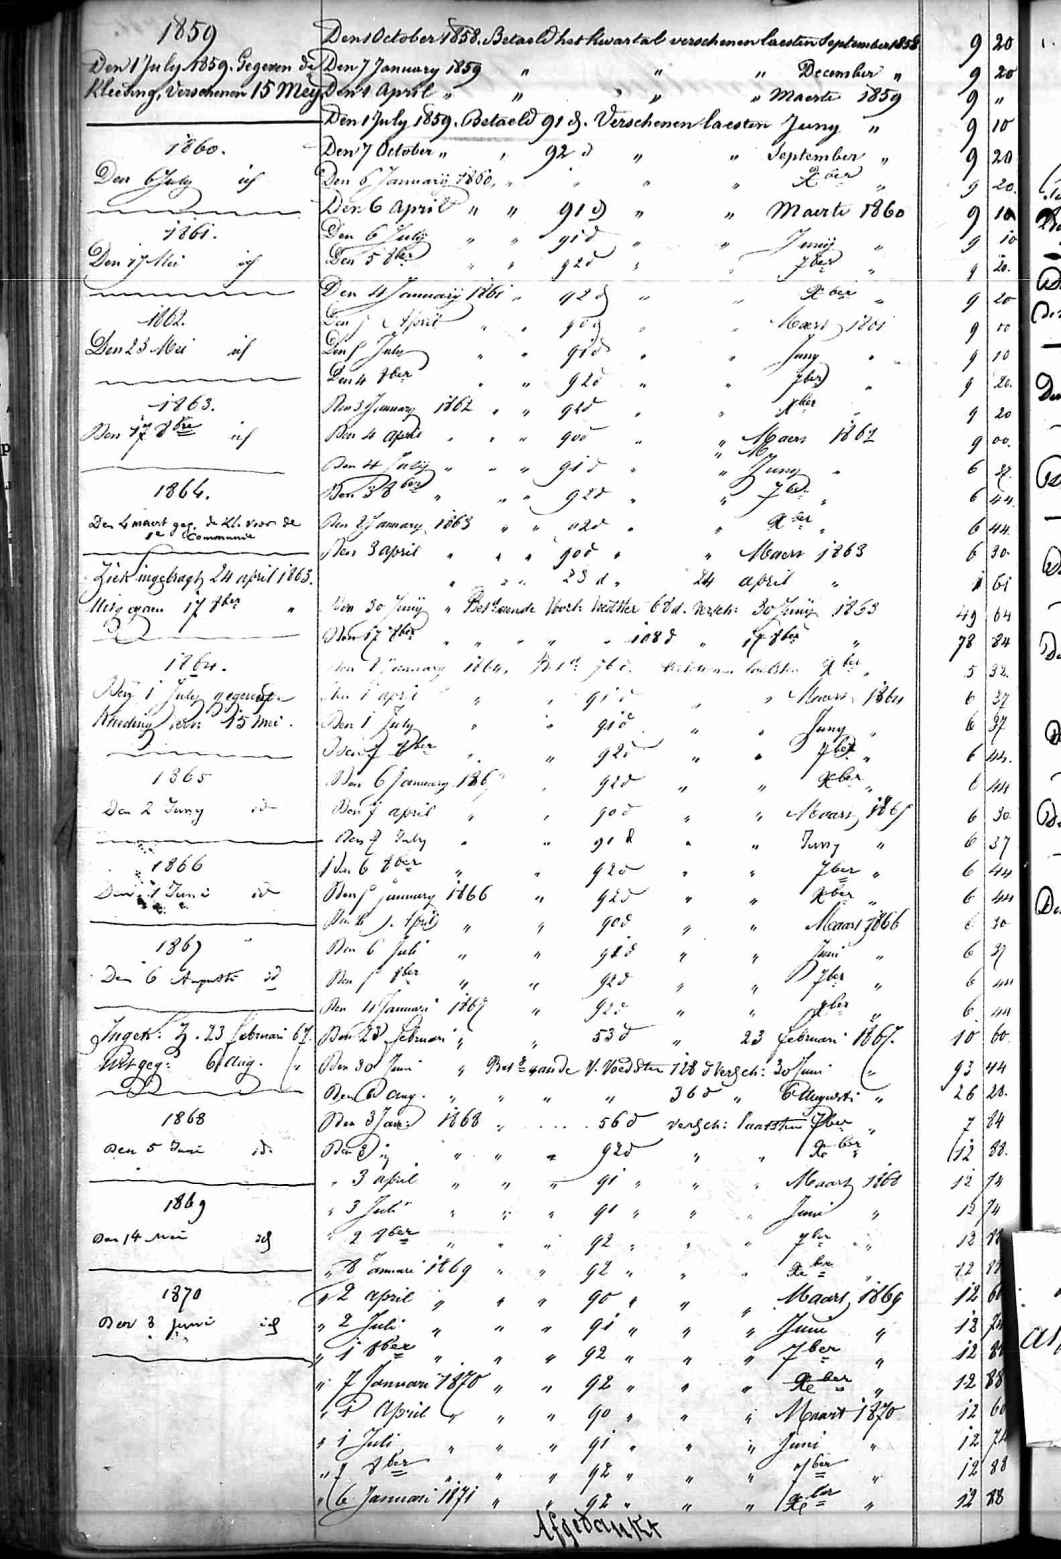 1859
Den 1 July 1859. Gegeven de
Kleeding, Verschenen 15 Mey
1860.
Den 6 July id
1861.
Den 17 Mei id
1862.
Den 23 Mei id
1863.
Den 17 8bre id
1864.
Den 4 maert geg. de Kl. voor de
1e Communie
Ziek ingebragt 24 april 1863.
Uitgegaan 17 8ber "
1864.
Den 1 July gegeven
Kleeding van 15 mei.
1865
Den 2 Juny id
1866
Den 1 Juni id
1867
Den 6 Augusti id
Ingek: Z. 23 februari 67.
Uitgeg: 6 Aug. "
1868
den 5 Juni id.
1869
den 14 Mei id
1870
Den 3 Juni id
Den 1 October 1858. Betaeld het kwartal verschenen laesten September 1858 9 20
Den 7 January 1859 " " " December " 9 20
Den 1 April " " " " Maerte 1859 9 "
Den 1 July 1859. Betaeld 91 d. Verschenen laesten Juny " 9 10
Den 7 October " " 92 d " " September " 9 20
Den 6 January 1860, " " " " Xber " 9 20.
Den 6 April " " 91 d " " Maerte 1860 9 10
Den 6 July " " 91 d " " Junij " 9 10
Den 5 8ber " " 92 d " " 7ber " 9 20.
Den 4 Januarij 1861 " 92 d " " Xber " 9 20
Den April " " 90 d " " Maers 1861 9 00
Den 5 July " " 91 d " " Juny " 9 10
Den 4 8ber " " 92 d " " 7ber " 9 20.
Den 3 January 1862 " " 92 d " " Xber " 9 20
Den 4 april " " " 90 d " Maers 1862 9 00.
Den 4 July " " " 91 d " " Juny " 6 37.
Den 3 8ber " " " 92 d " " 7ber " 6 44.
Den 2 January 1863 " " 92 d " " Xber " 6 44.
Den 3 april " " " 90 d " " Maers 1863 6 30
" " " 23 d " 24 april " 1 61
Den 30 Junij " Best. aende Voorz. Voedster 68 d. versch: 30 Junij 1863 49 64
Den 17 8ber " " " " 108 d " 17 8ber " 78 84
Den January 1864, 76 d. laetsten Xber " 5 32.
Den 1 april " " 91 d " " Maers 1864 6 37
Den 1 July " " 91 d " " Juny " 6 37
Den 7 8ber " " 92 d " " 7ber " 6 44.
Den 6 January 1865 " 92 d " " Xber " 6 44
Den 7 april " " 90 d " " Maars 1865 6 30
Den 7 July " " 91 d " " Juny " 6 37
Den 6 8ber " " 92 d " " 7ber " 6 44
Den 5 january 1866 " 92 d " " Xber " 6 44
Den April " " 90 d " " Maart 1866 6 30
Den 6 Juli " " 91 d " " Juni " 6 37
Den 5 8ber " " 92 d " " 7ber " 6 44
Den 4 Januari 1867 " 92 d " " Xber " 6 44
Den 28 februari " " 53 d " 23 februari 1867. 10 60
Den 30 Juni " Best. aande V. Voedster 128 d versch: 30 Juni " 93 44
Den 6 aug. " " " " 36 d " 6 Augusti " 26 28.
Den 3 Jan: 1868 " ..... 56 d versch: laatsten 7ber " 7 84
Den 3 " " " 92 d " " Xber " 12 88.
" 3 april " " " 91 " " Maart 1868 12 74
" 3 Juli " " " 91 " " Juni " 12 74
" 2 8ber " " " 92 " " 7ber " 12 88
" 8 Januari 1869 " " 92 " " Xber " 12 88
" 2 april " " " 90 " " Maart 1869 12 60
" 2 Juli " " " 91 " " Juni " 12 74
" 1 8ber " " " 92 " " 7ber " 12 88
" 7 Januari 1870 " " 92 " " Xber " 12 88
" 1 April " " " 90 " " Maart 1870 12 60
" 1 Juli " " " 91 " " Juni " 12 74
" 7 8ber " " " 92 " " 7ber " 12 88
" 6 Januari 1871 " " 92 " " Xber " 12 88
Afgedankt